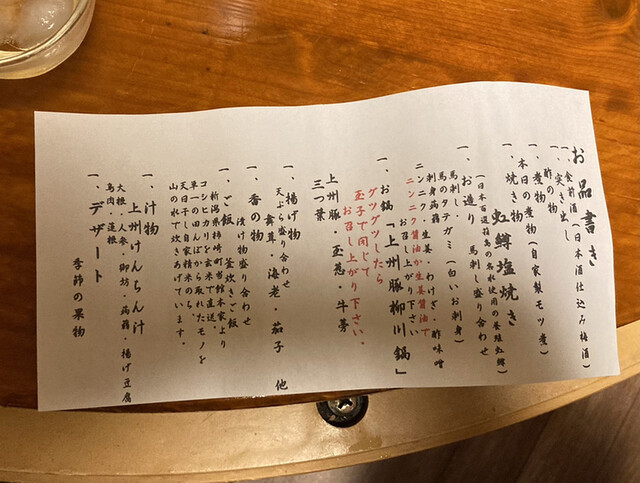 お品書き
一、食前酒(日本酒仕込み梅酒)
一、突き出し
酢の物
一、煮物
本日の煮物(自家製モツ煮)
一、焼き物
虹鱒塩焼き
(日本百選箱島の名水使用の養殖虹鱒)
一、お造り 馬刺し盛り合わせ
馬刺し
馬のタテガミ(白いお刺身)
刺身蒟蒻 ・酢味噌
ニンニク・生姜・わけぎ
ニンニク醤油か生姜醤油で
お召し上がり下さい。
一、お鍋「上州豚柳川鍋」
グツグツしたら
玉子で閉じて
お召し上がり下さい。
上州豚・玉葱・牛蒡
三つ葉
一、揚げ物
天ぷら盛り合わせ
舞茸・海老・茄子 他
一、香の物
漬け物盛り合わせ
一、ご飯 釜炊きご飯
新潟県柿崎町当館本家より
コシヒカリを玄米で直送。
単一の田んぼから取れたモノを
天日干し自家精米のち、
山の水で炊きあげています。
一、汁物
上州けんちん汁
大根・人参・御坊・蒟蒻・揚げ豆腐
鳥肉・蓮根
一、デザート
季節の果物